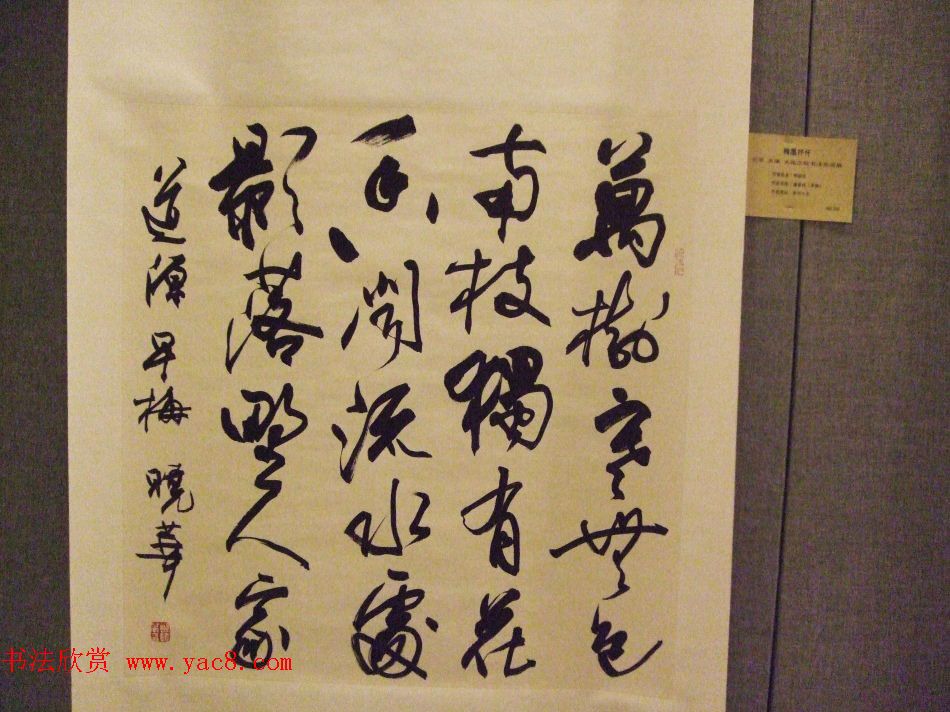 萬樹寒無色
南枝獨有花
香聞流水處
影落野人家
道源 早梅 曉華
书法欣赏 www.yac8.com